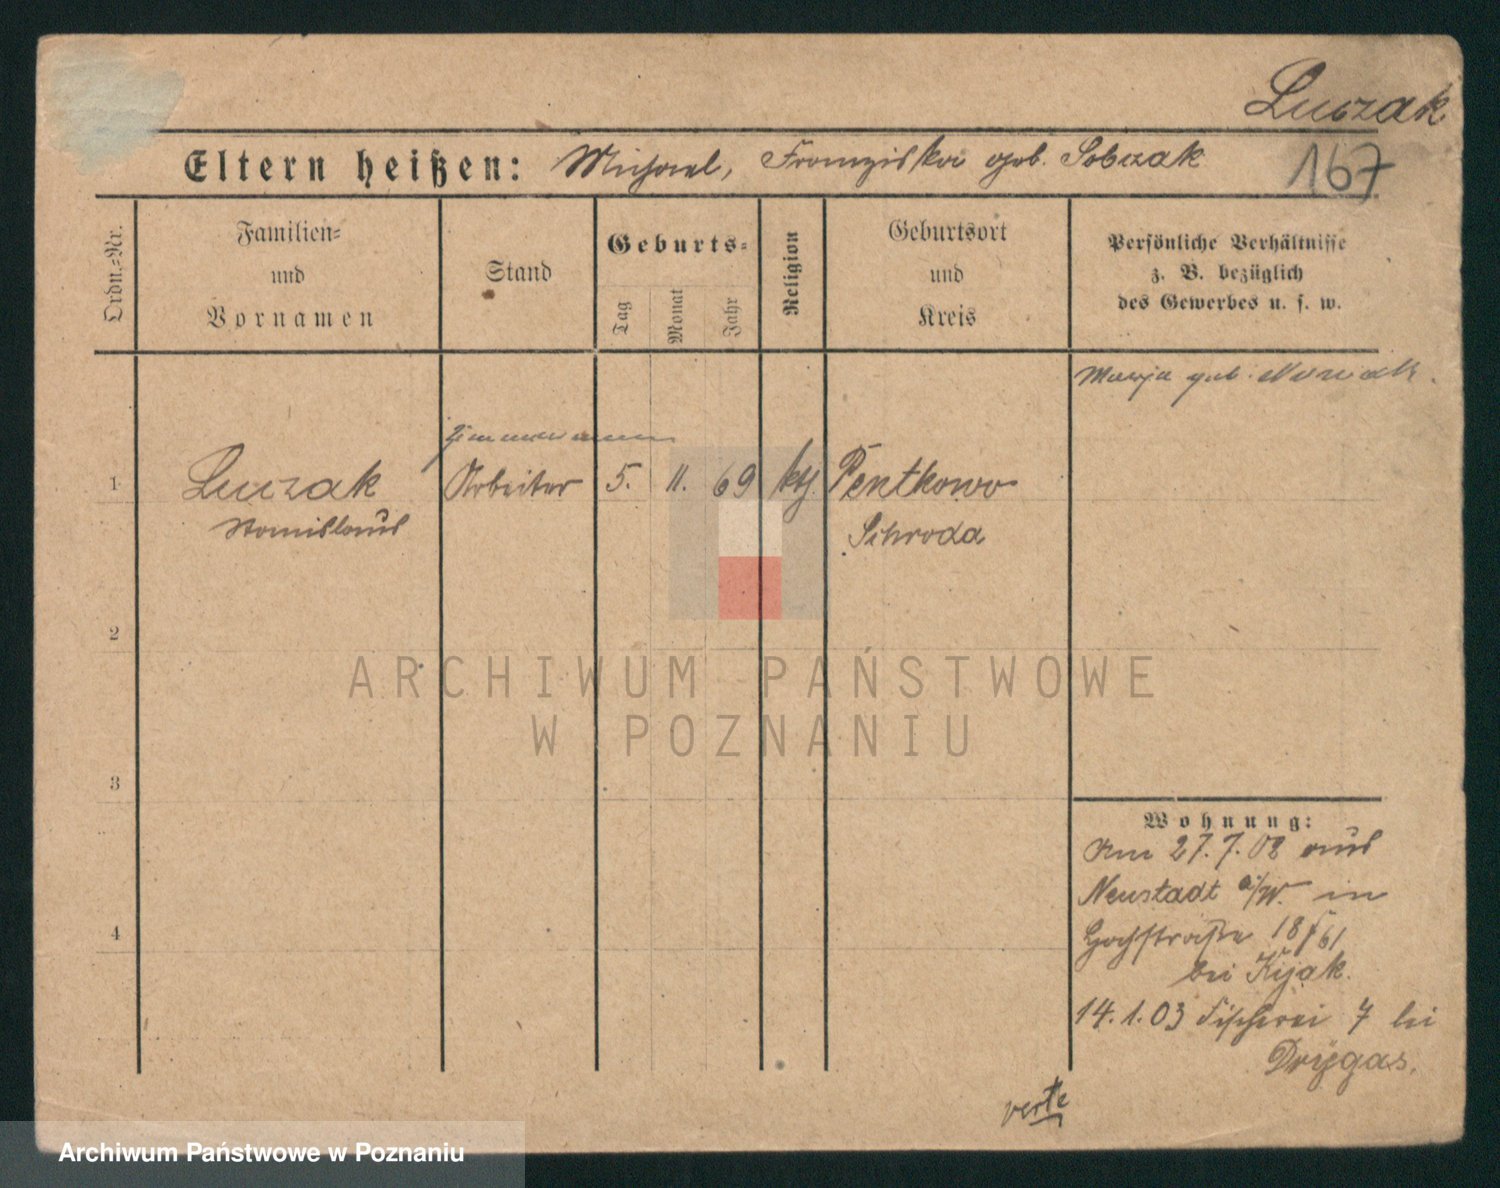 Luczak
Eltern heißen: Michael, Franziska geb. Sobczak
167
Ordn.-Nr.
Familien-
und
Vornamen
Stand
Geburts-
Tag
Monat
Jahr
Religion
Geburtsort
und
Kreis
Persönliche Verhältnisse
z. B. bezüglich
des Gewerbes u. s. w.
Marja geb. Nowak.
Zimmermann
1 Luczak Arbeiter 5. 11. 69 kth. Pentkowo
Stanislaus Schroda
2
3
4
ARCHIWUM PAŃSTWOWE
W POZNANIU
Wohnung:
Am 27.7.02 aus
Neustadt a/W. in
Hochstraße 18
bei Kijak.
14.1.03 Fischerei 7 bei
Drygas.
verte
Archiwum Państwowe w Poznaniu